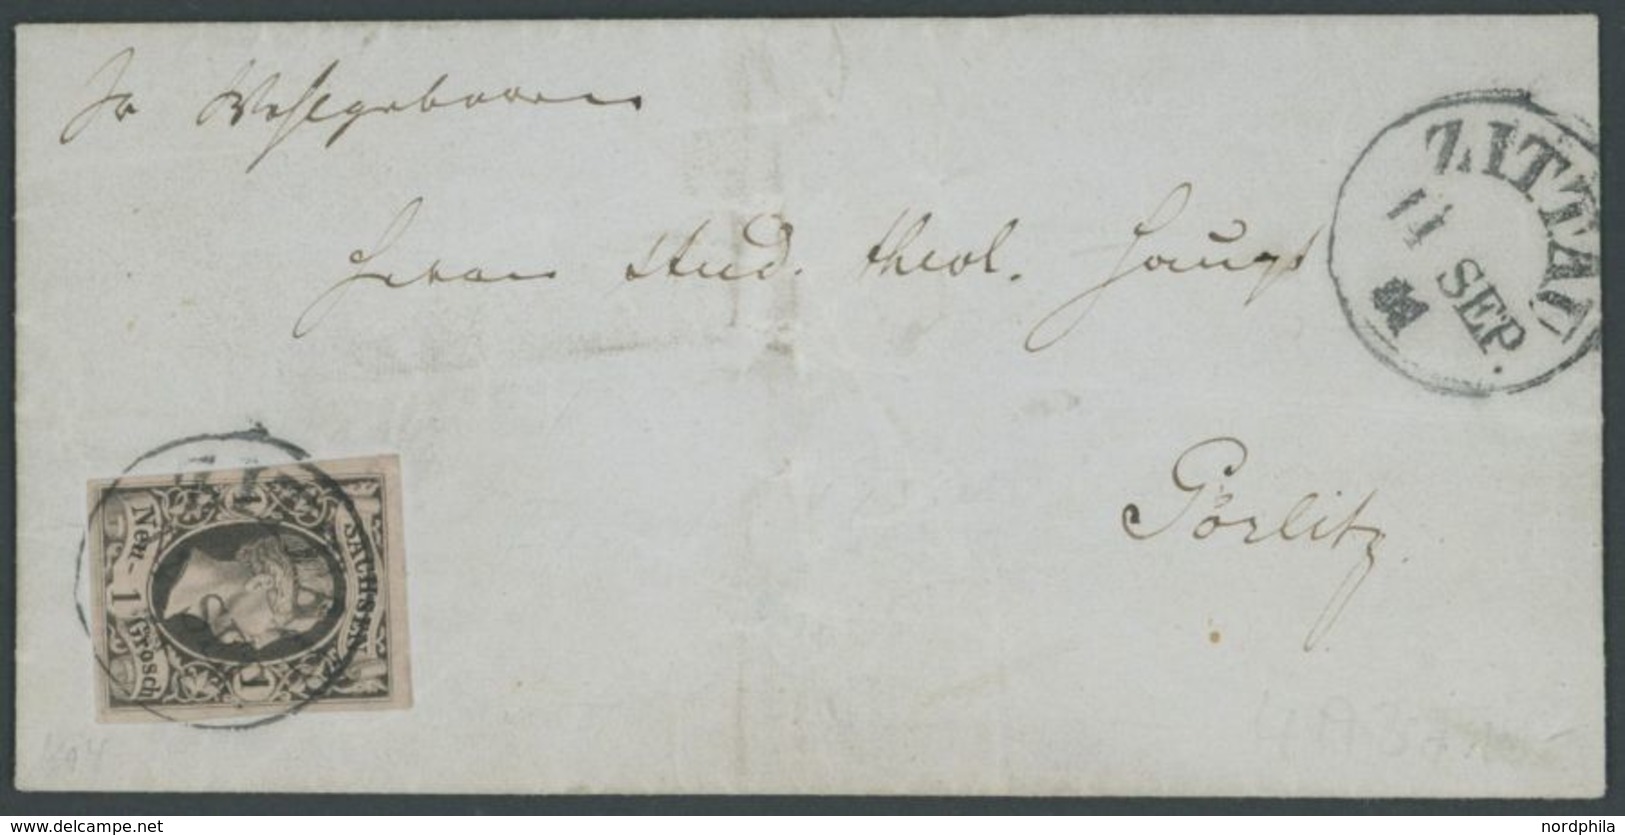 Sr Wohlgeboren
Herrn stud. theol. Haupt
Görlitz
ZITTAU
14 SEP.
SACHSEN
1
1
Neu- 1 Grosch
delcampe.net
nordphila